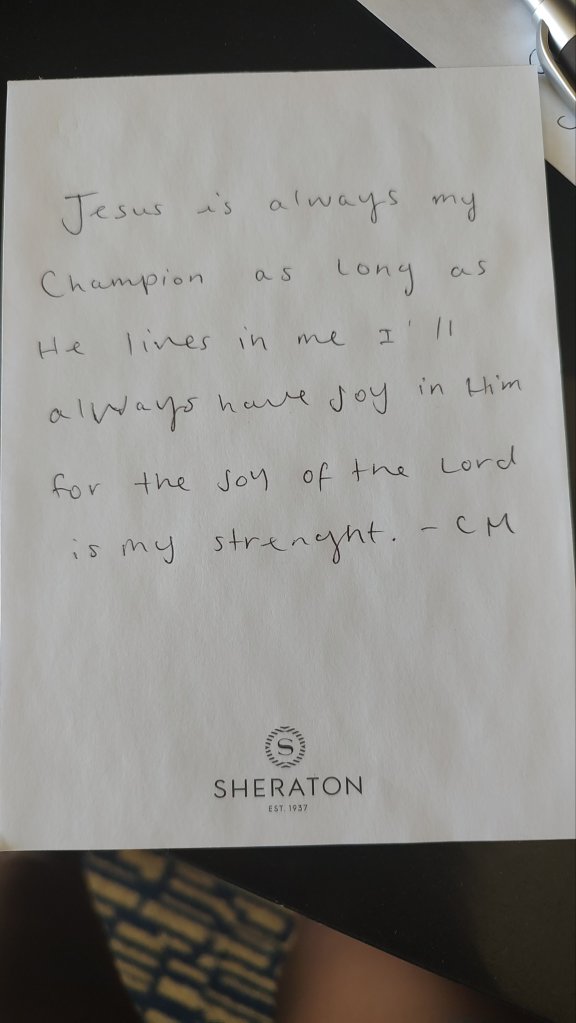 Jesus is always my
Champion as long as
He lives in me I'll
always have Joy in Him
for the Joy of the Lord
is my strenght. - CM
S
SHERATON
EST. 1937